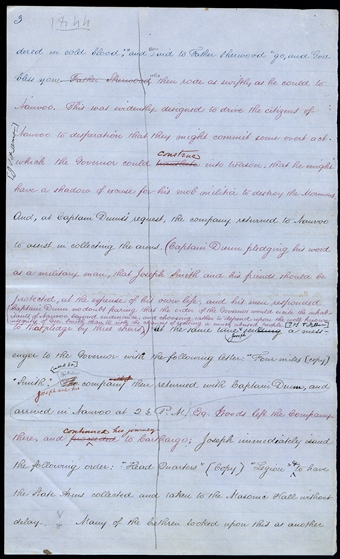 3
1844
dered in cold blood;" and said to Father Sherwood "go, and God
bless you." Father Sherwood, who then rode as swiftly as he could to
Nauvoo. This was evidently designed to drive the citizens of
Nauvoo to desperation that they might commit some overt act
which the Governor could construe into treason, that he might
have a shadow of excuse for his mob militia to destroy the Mormons
And, at Captain Dunn's request, the company returned to Nauvoo
to assist in collecting the arms (Captain Dunn pledging his word
as a military man, that Joseph Smith and his friends should be
protected, at the expense of his own life, and his men responded
(Captain Dunn no doubt fearing that the order of the Governor would
to that pledge by three cheers) at the same time sending a mess-
enger to the Governor with the following letter: "Four miles (copy)
"Smith." The company then returned with Captain Dunn, and
arrived in Nauvoo at 2 ½ P.M. Esq. Woods left the Company
there, and continued his journey to Carthage; Joseph immediately issued
the following order: "Head Quarters" (Copy) "Legion" to have
the State Arms collected and taken to the Masonic Hall without
delay. Many of the brethren looked upon this as another